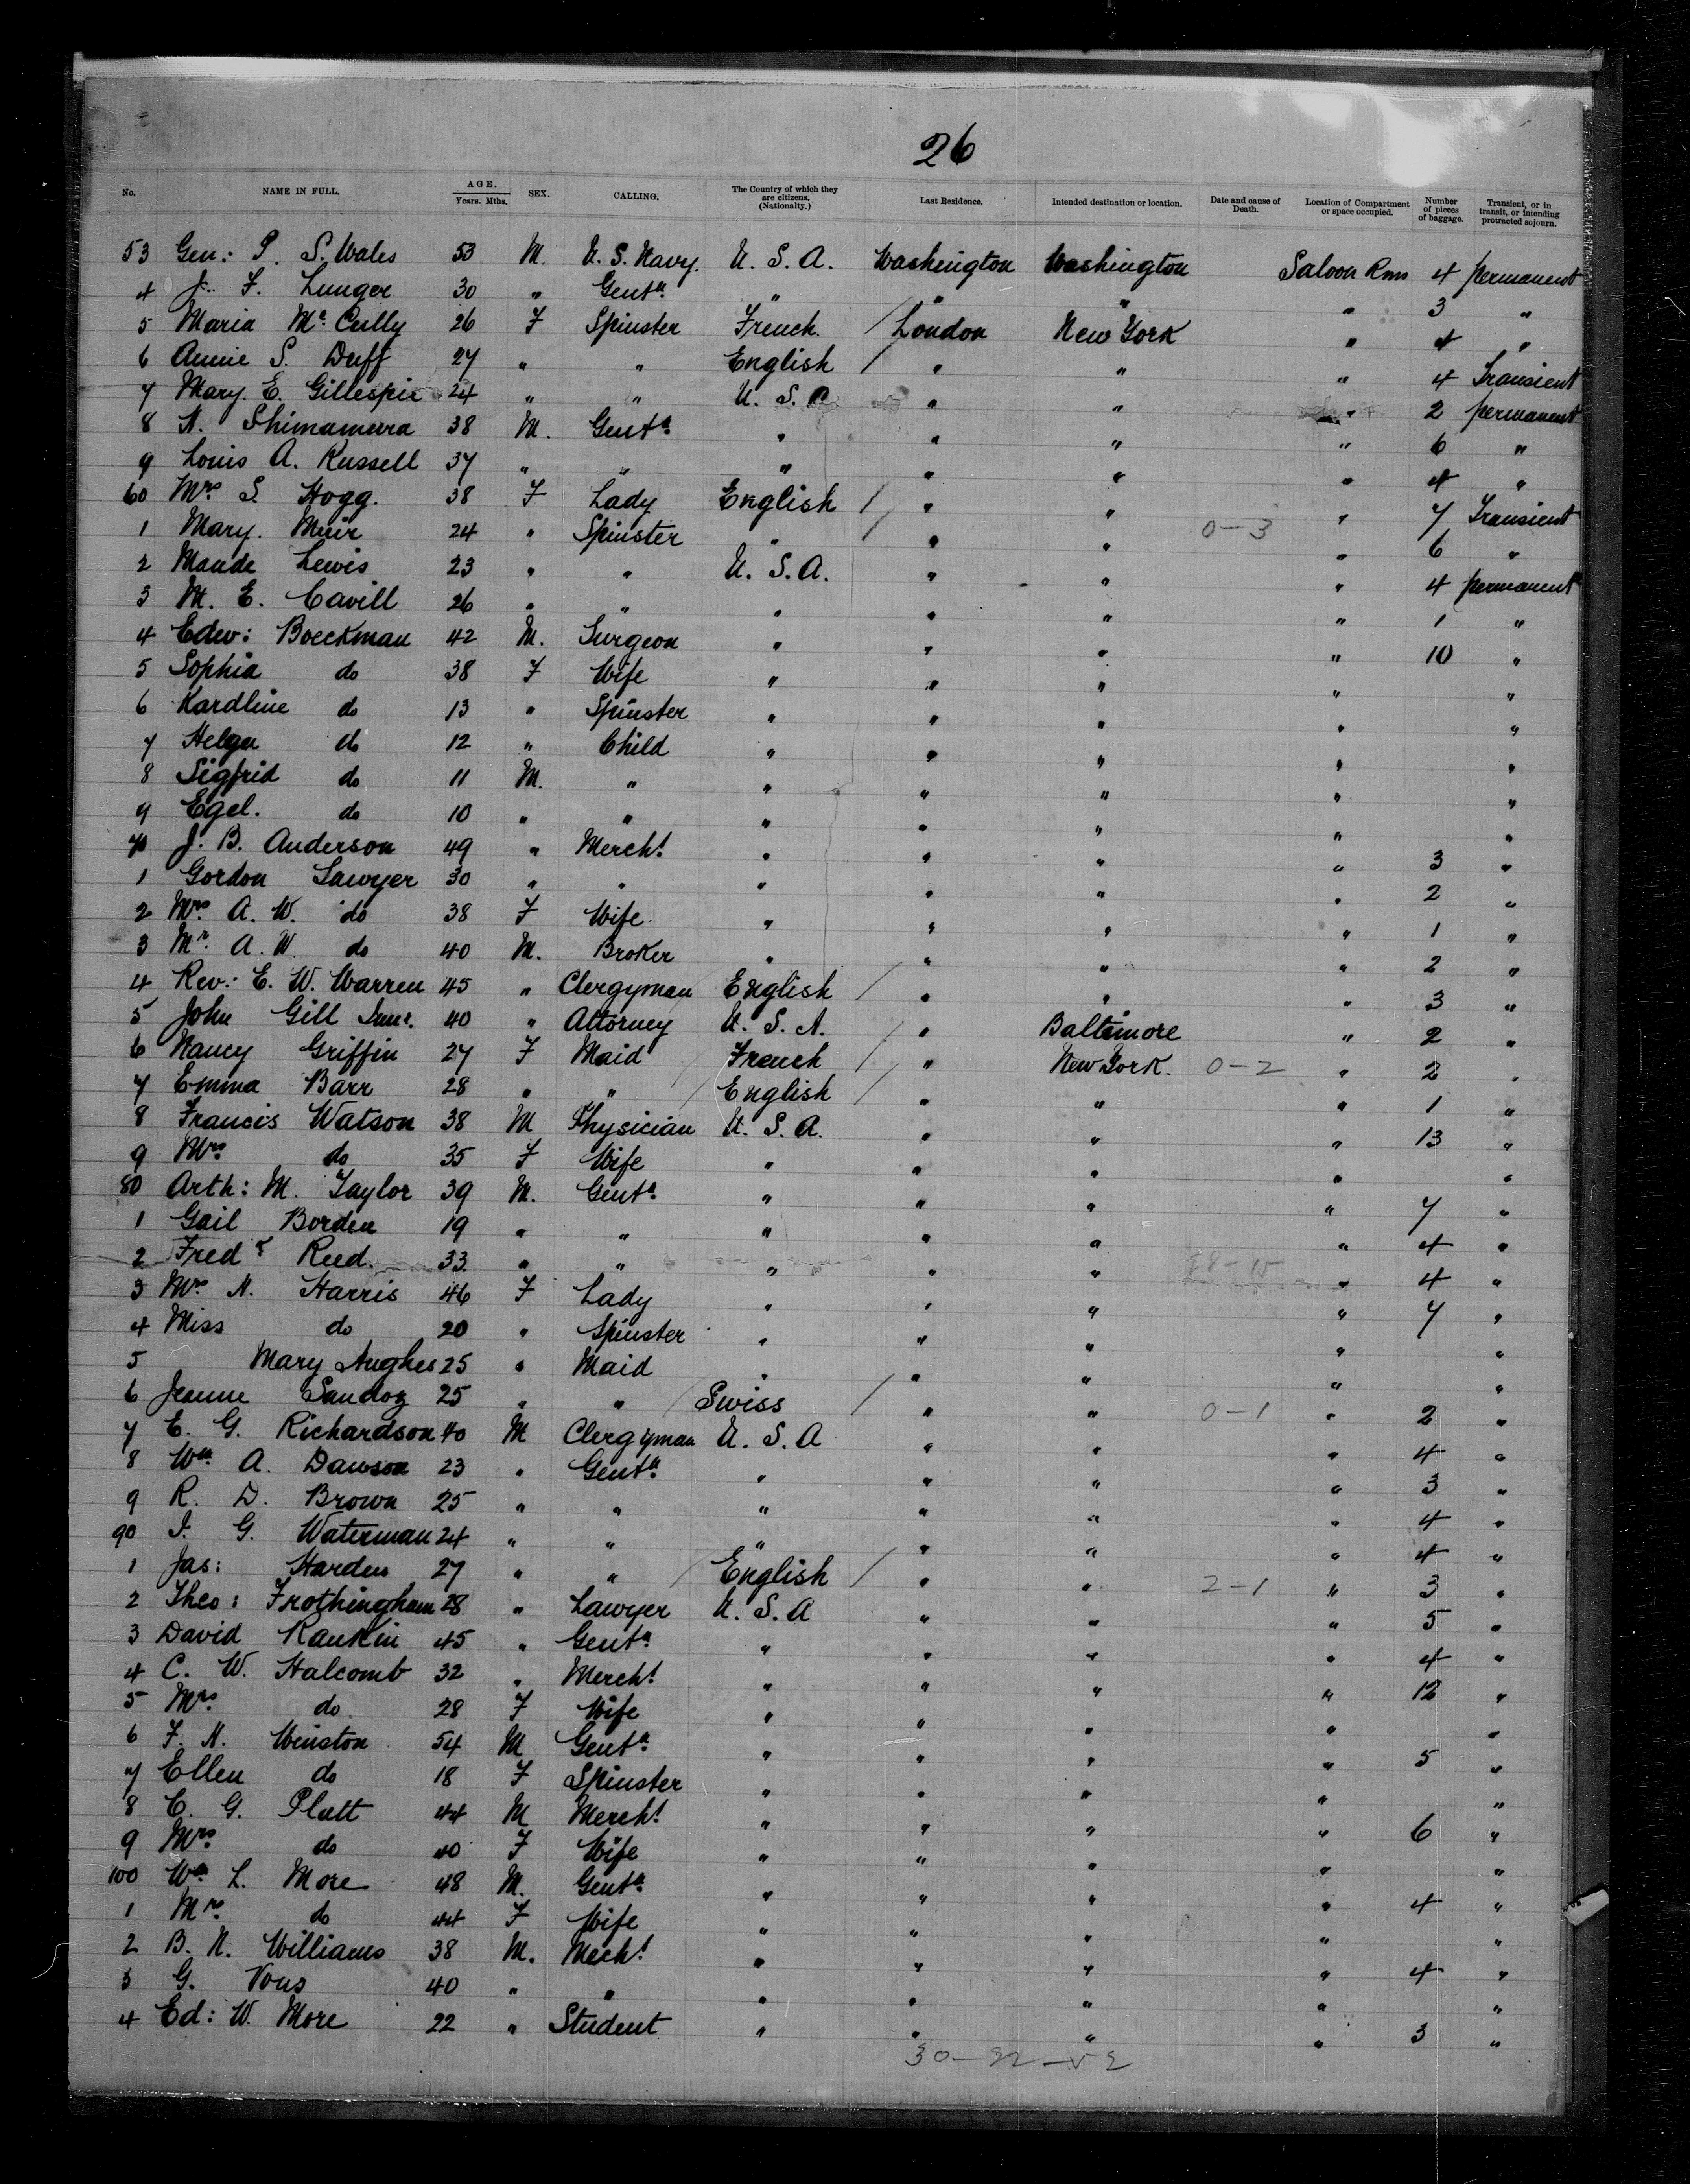 26
No. NAME IN FULL. AGE. Years. Mths. SEX. CALLING. The Country of which they are citizens. (Nationalty.) Last Residence. Intended destination or location. Date and cause of Death. Location of Compartment or space occupied. Number of pieces of baggage. Transient, or in transit, or intending protracted sojourn.
53 Gen: P. S. Wales 53 M. U. S. Navy. U. S. A. Washington Washington Saloon Rms 4 permanent
4 J. F. Lunger 30 " Gentn " " " " 3 "
5 Maria Mc Cully 26 F Spinster French. / London New York " 4 "
6 Annie S. Duff 27 " " English / " " " 4 Transient
7 Mary. E. Gillespie 24 " " U. S. A " " " 2 permanent
8 N. Shimamura 38 M. Gentn " " " " 6 "
9 Louis A. Russell 37 " " " " " " 4 "
60 Mrs S. Hogg. 38 F Lady English / " " " 7 Transient
1 Mary. Muir 24 " Spinster " / " " 0-3 " 6 "
2 Maude Lewis 23 " " U. S. A. " " " 4 permanent
3 M. E. Cavill 26 " " " " " " 1 "
4 Edw: Boeckman 42 M. Surgeon " " " " 10 "
5 Sophia do 38 F Wife " " " " "
6 Kardline do 13 " Spinster " " " " "
7 Helga do 12 " Child " " " " "
8 Sigfrid do 11 M. " " " " " "
9 Egel. do 10 " " " " " " "
70 J. B. Anderson 49 " Mercht " " " " 3 "
1 Gordon Sawyer 30 " " " " " " 2 "
2 Mrs A. W. do 38 F Wife " " " " 1 "
3 Mr. A. W. do 40 M. Broker " " " " 2 "
4 Rev: E. W. Warren 45 " Clergyman English / " " " 3 "
5 John Gill Junr. 40 " Attorney U. S. A. / " Baltimore " 2 "
6 Nancy Griffin 27 F Maid / French / " New York. 0-2 " 2 "
7 Emma Barr 28 " " / English / " " " 1 "
8 Francis Watson 38 M Physician U. S. A. " " " 13 "
9 Mrs do 35 F Wife " " " " "
80 Arth: M. Taylor 39 M. Gentn " " " " 7 "
1 Gail Borden 19 " " " " " " 4 "
2 Fredk Reed. 33 " " " " " " 4 "
3 Mrs N. Harris 46 F Lady " " " " 7 "
4 Miss do 20 " Spinster " " " " "
5 Mary Hughes 25 " Maid " " " " "
6 Jeanne Sandoz 25 " " / Swiss / " " 0-1 " 2 "
7 E. G. Richardson 40 M Clergyman U. S. A " " " 4 "
8 Wm A. Dawson 23 " Gentn " " " " 3 "
9 R. D. Brown 25 " " " " " " 4 "
90 I. G. Waterman 24 " " " " " " 4 "
1 Jas: Harden 27 " " / English / " " 2-1 " 3 "
2 Theo: Frothingham 28 " Lawyer U. S. A " " " 5 "
3 David Rankin 45 " Gentn " " " " 4 "
4 C. W. Halcomb 32 " Mercht " " " " 12 "
5 Mrs do 28 F Wife " " " " "
6 F. H. Winston 54 M Gentn " " " " 5 "
7 Ellen do 18 F Spinster " " " " "
8 C. G. Platt 44 M Mercht " " " " 6 "
9 Mrs do 40 F Wife " " " " "
100 Wm L. More 48 M. Gentn " " " " 4 "
1 Mrs do 44 F Wife " " " " "
2 B. N. Williams 38 M. Mecht " " " " 4 "
3 G. Vous 40 " " " " " " "
4 Ed: W. More 22 " Student " " " " 3 "
30-22-52